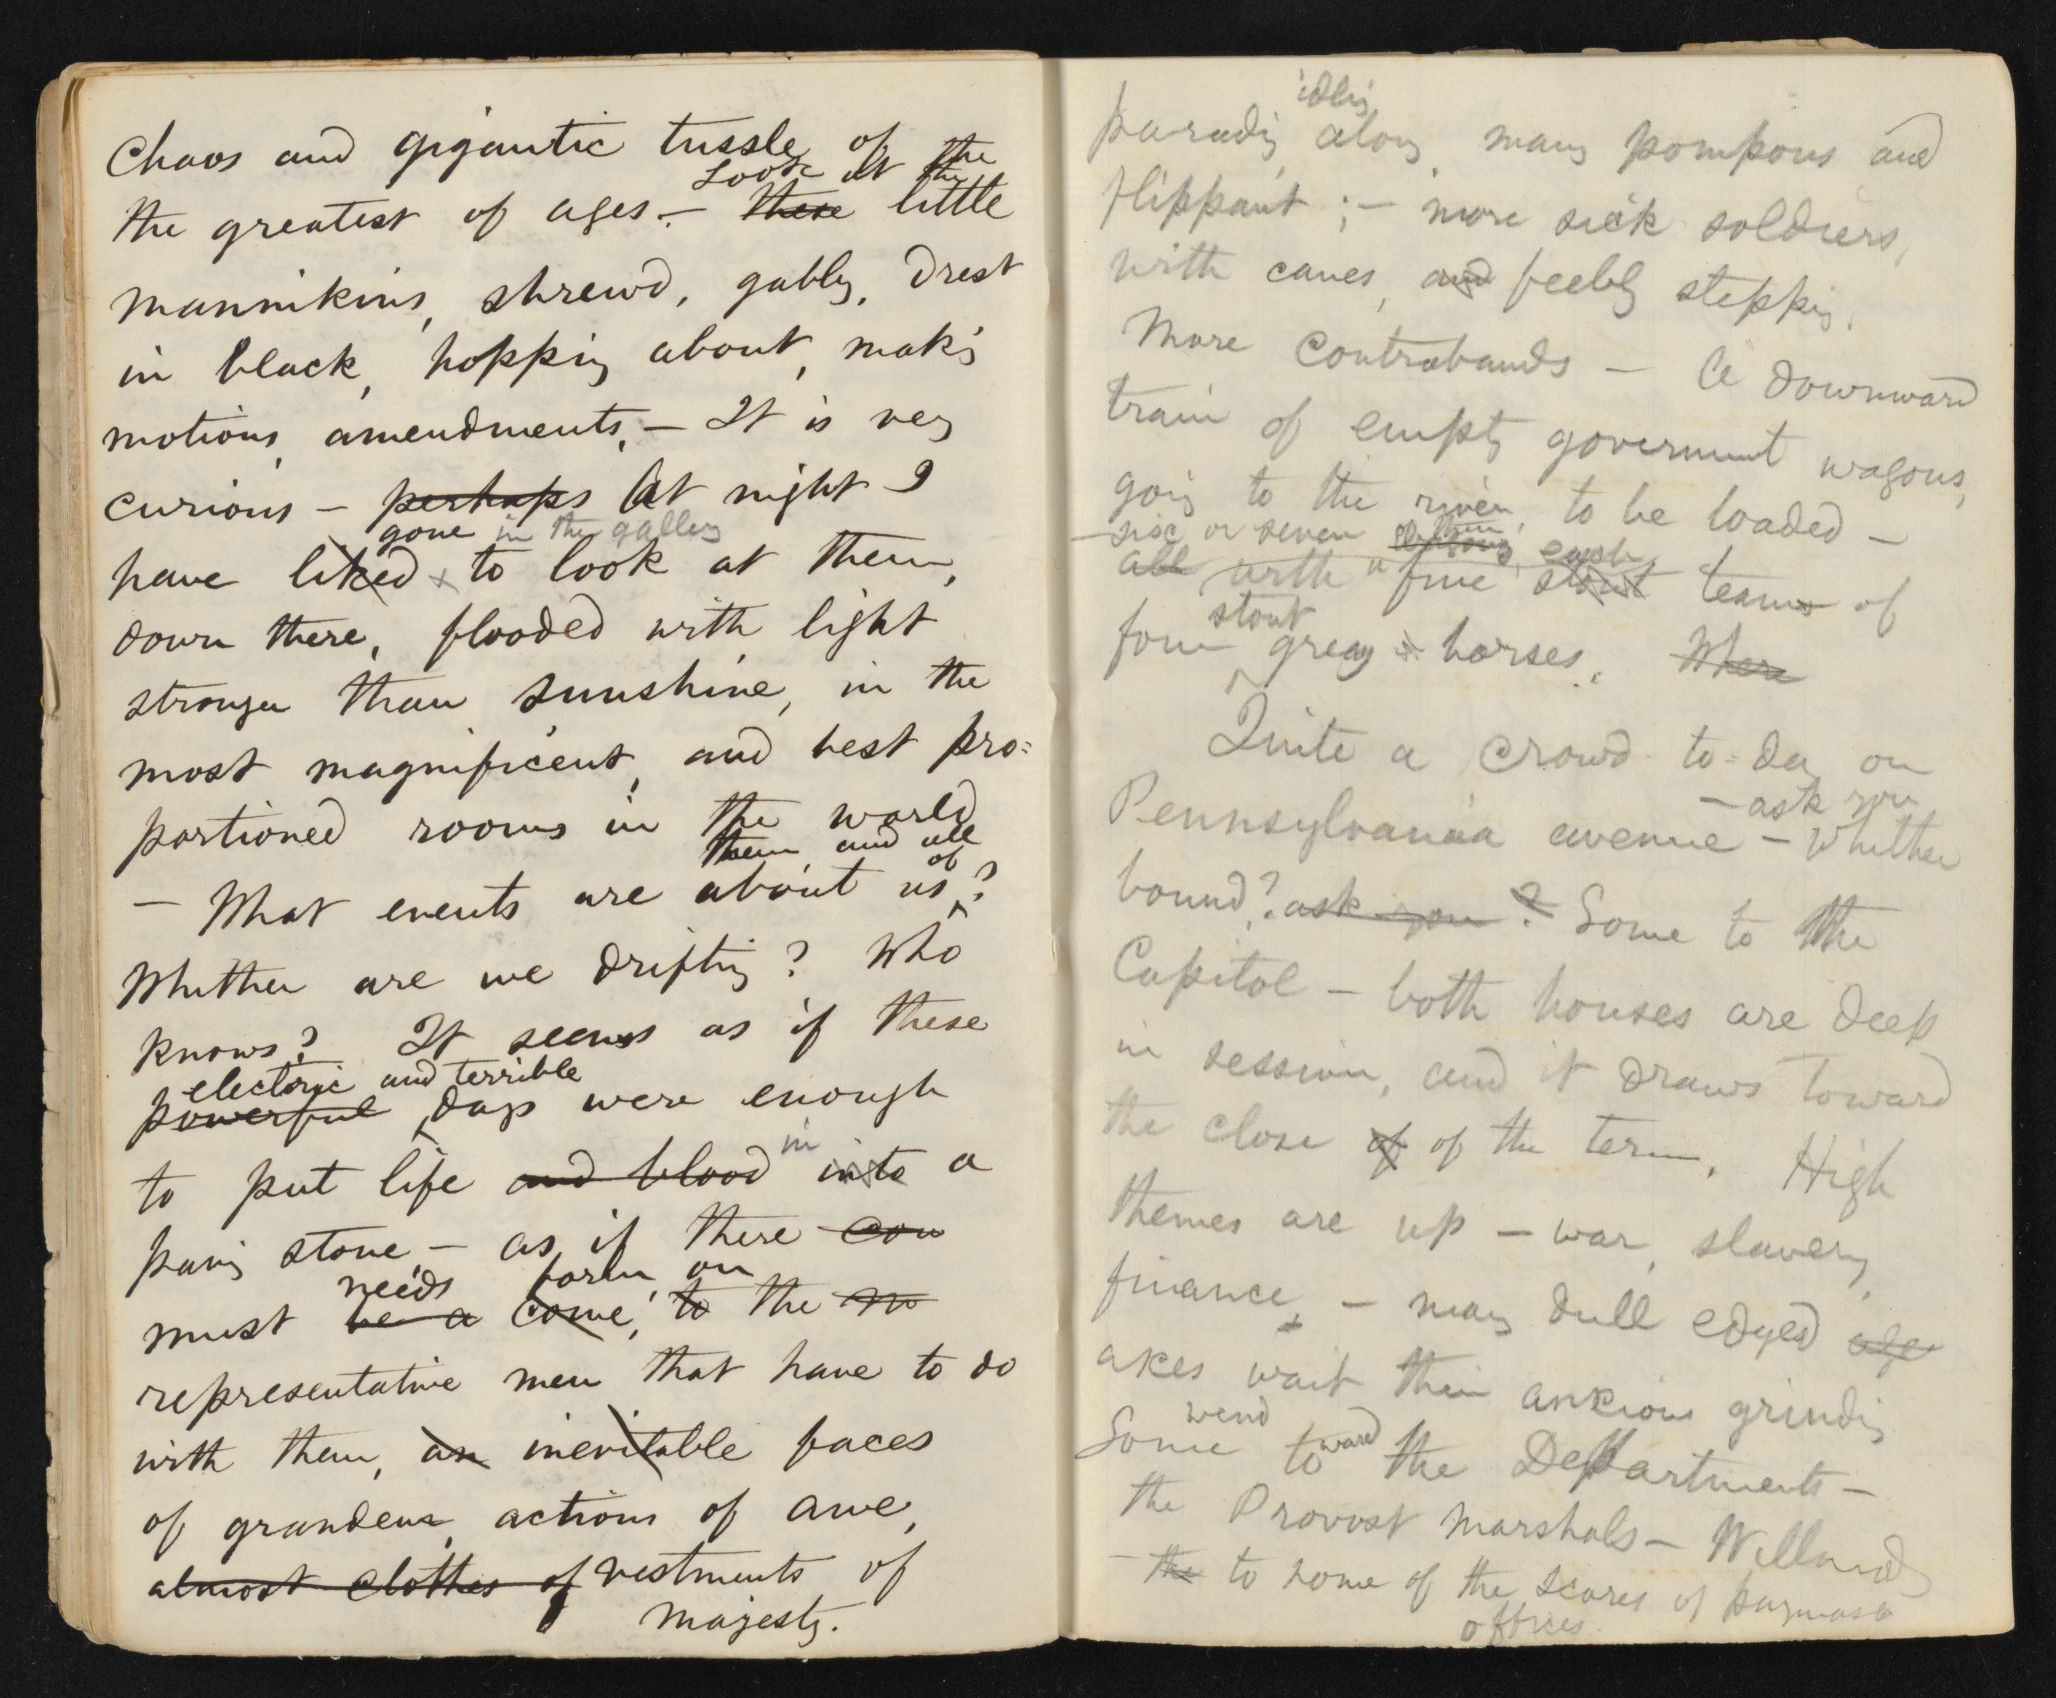 Chaos and gigantic tussle of the
Look at the
the greatest of ages. — these little
mannikins, shrewd, gabby, drest
in black, hopping about, making
motions, amendments, — It is very
curious — perhaps At night I
gone in the gallery
have liked to look at them,
down there, flooded with light
stronger than sunshine, in the
most magnificent, and best pro=
portioned rooms in the world
them, and all
of
— What events are about us?
Whither are we drifting? Who
knows? It seems as if these
electric and terrible
powerful days were enough
in
to put life and blood into a
paving stone, — as if there con
needs form on
must be a come, to the m
representative men that have to do
with them, an inevitable faces
of grandeur, actions of awe,
almost clothes of vestments of
majesty.
idling
parading along, many pompous and
flippant; — more sick soldiers,
with canes, and feebly stepping.
More contrabands — A downward
train of empty government wagons,
going to the river, to be loaded —
— six or seven of them, each
all with a fine stout teams of
stout
four grey horses. When
Quite a crowd to-day on
— ask you
Pennsylvania avenue — Whither
bound? ask you? Some to the
Capitol — both houses are deep
in session, and it draws toward
the close of of the term. High
themes are up — war, slavery,
finance, — many dull edged age
axes wait their anxious grinding
wend
Some toward the Departments —
the Provost Marshals — Willards
— the to some of the scores of paymaster
offices.